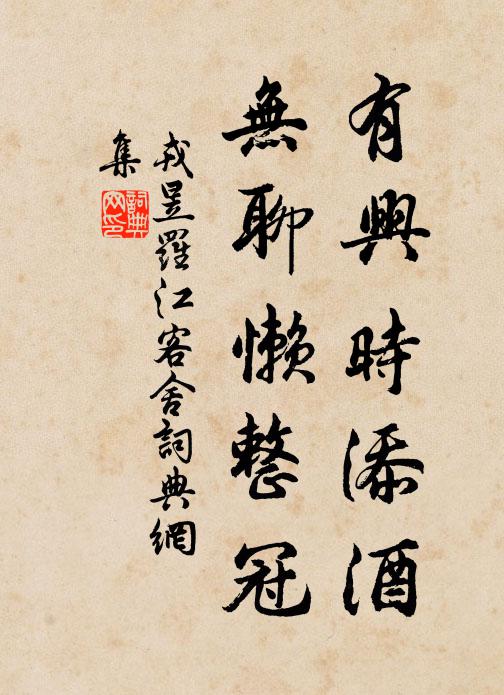 有興時添酒
無聊懶整冠
戎昱羅江客舍詞典網
集
詞典
网印